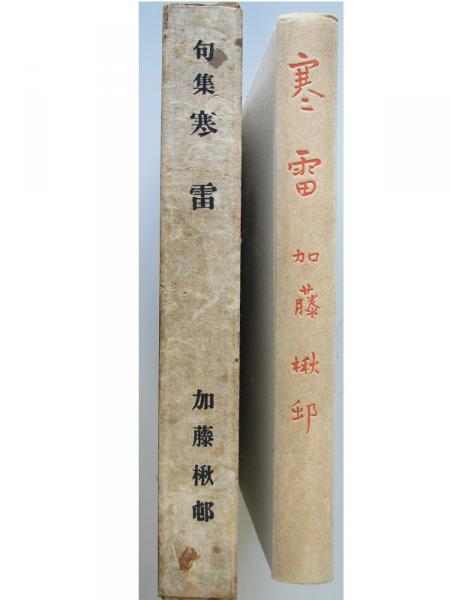 句集寒雷
加藤楸邨
寒雷
加藤楸邨